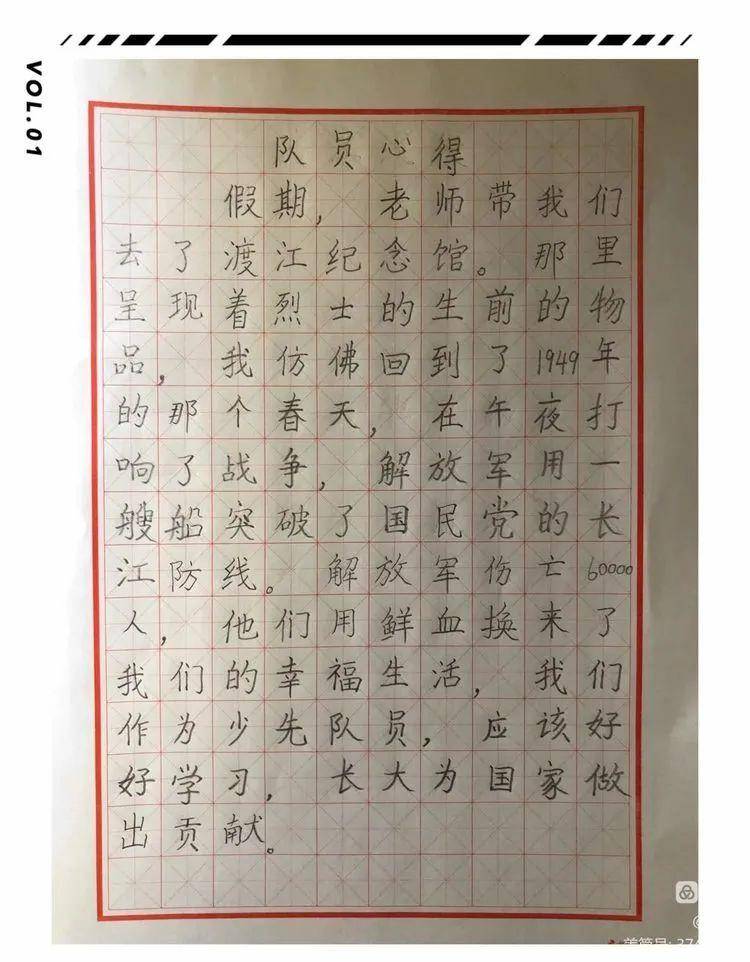 VOL.01
队员心得
假期，老师带我们
去了渡江纪念馆。那里
呈现着烈士的生前的物
品，我仿佛回到了1949年
的那个春天，在午夜打
响了战争，解放军用一
艘船突破了国民党的长
江防线。解放军伤亡60000
人，他们用鲜血换来了
我们的幸福生活，我们
作为少先队员，应该好
好学习，长大为国家做
出贡献。